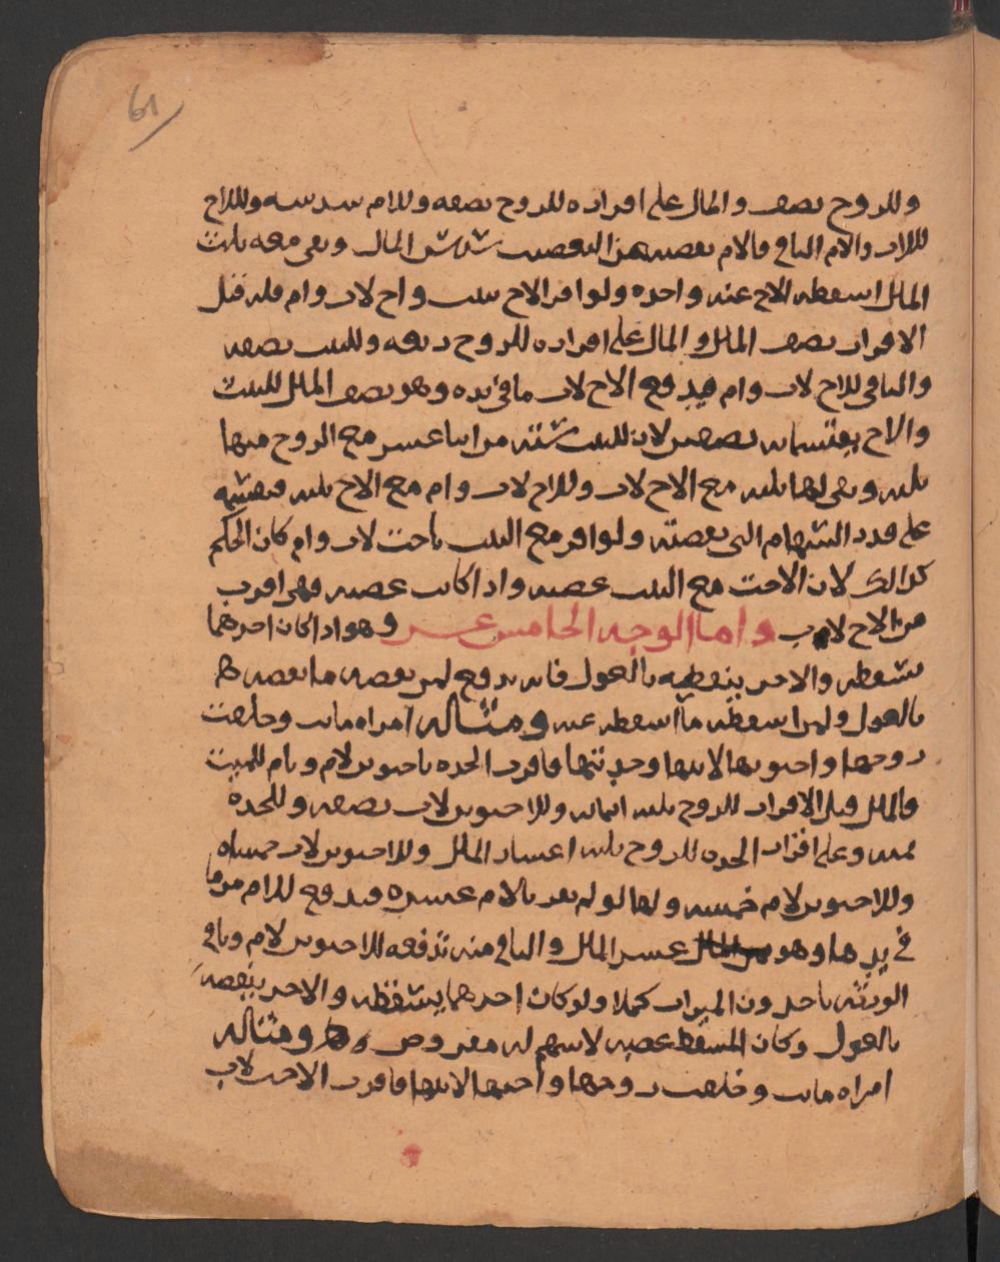 61
وللزوج نصف والمال على اقراره للزوج نصفه وللام سدسه وللاخ
للاب والام الباقي فالام نقصت هذا النقصت سدس المال وبقي معه ثلث
المال اسقطه الاخ عنه واحده ولو اقر الاخ ببنت واخ لاب وام فله قبل
الاقرار نصف المال والمال على اقراره للزوج ربعه وللبنت نصفه
والباقي للاخ لاب وام فيدفع الاخ لاب ما في يده وهو نصف المال للبنت
والاخ يقتسمانه نصفين لان للبنت ستة من اثنا عشر مع الزوج منها
ثلثه وبقي لها ثلثه مع الاخ لاب وللاخ لاب وام مع الاخ ثلثه فيقسمه
على قدر السهام التي نقصته ولو اقر مع البنت باخت لاب وام كان الحكم
كذالك لان الاخت مع البنت عصبه واذا كانت عصبه فهي اقرب
من الاخ لاب واما الوجه الخامس عشر وهو اذا كان احدهما
يسقطه والاخر ينقصه بالعول فانه يدفع لمن نقصه ما نقصه
بالعول ولمن اسقطه ما اسقطه عنه ومثاله امراه ماتت وخلفت
زوجها واختيها لابيها وجدتها فاقرت الجده باختين لام وبام للميت
فالمال قبل الاقرار للزوج ثلثه اثمانه وللاختين لاب نصفه وللجده
ثمنه وعلى اقرار الجده للزوج ثلثه اعشار المال وللاختين لاب خمساه
وللاختين لام خمسه ولها لو لم تقر بالام عشره فيدفع للام من ما
في يدها وهو عشر المال والباقي منه تدفعه للاختين لام وباقي
الورثه ياخذون الميراث كملا ولو كان احدهما يسقطه والاخر ينقصه
بالعول وكان المسقط عصبه لا سهم له مفروض ومثاله
امراه ماتت وخلفت زوجها واختها لابيها فاقرت الاخت لاب